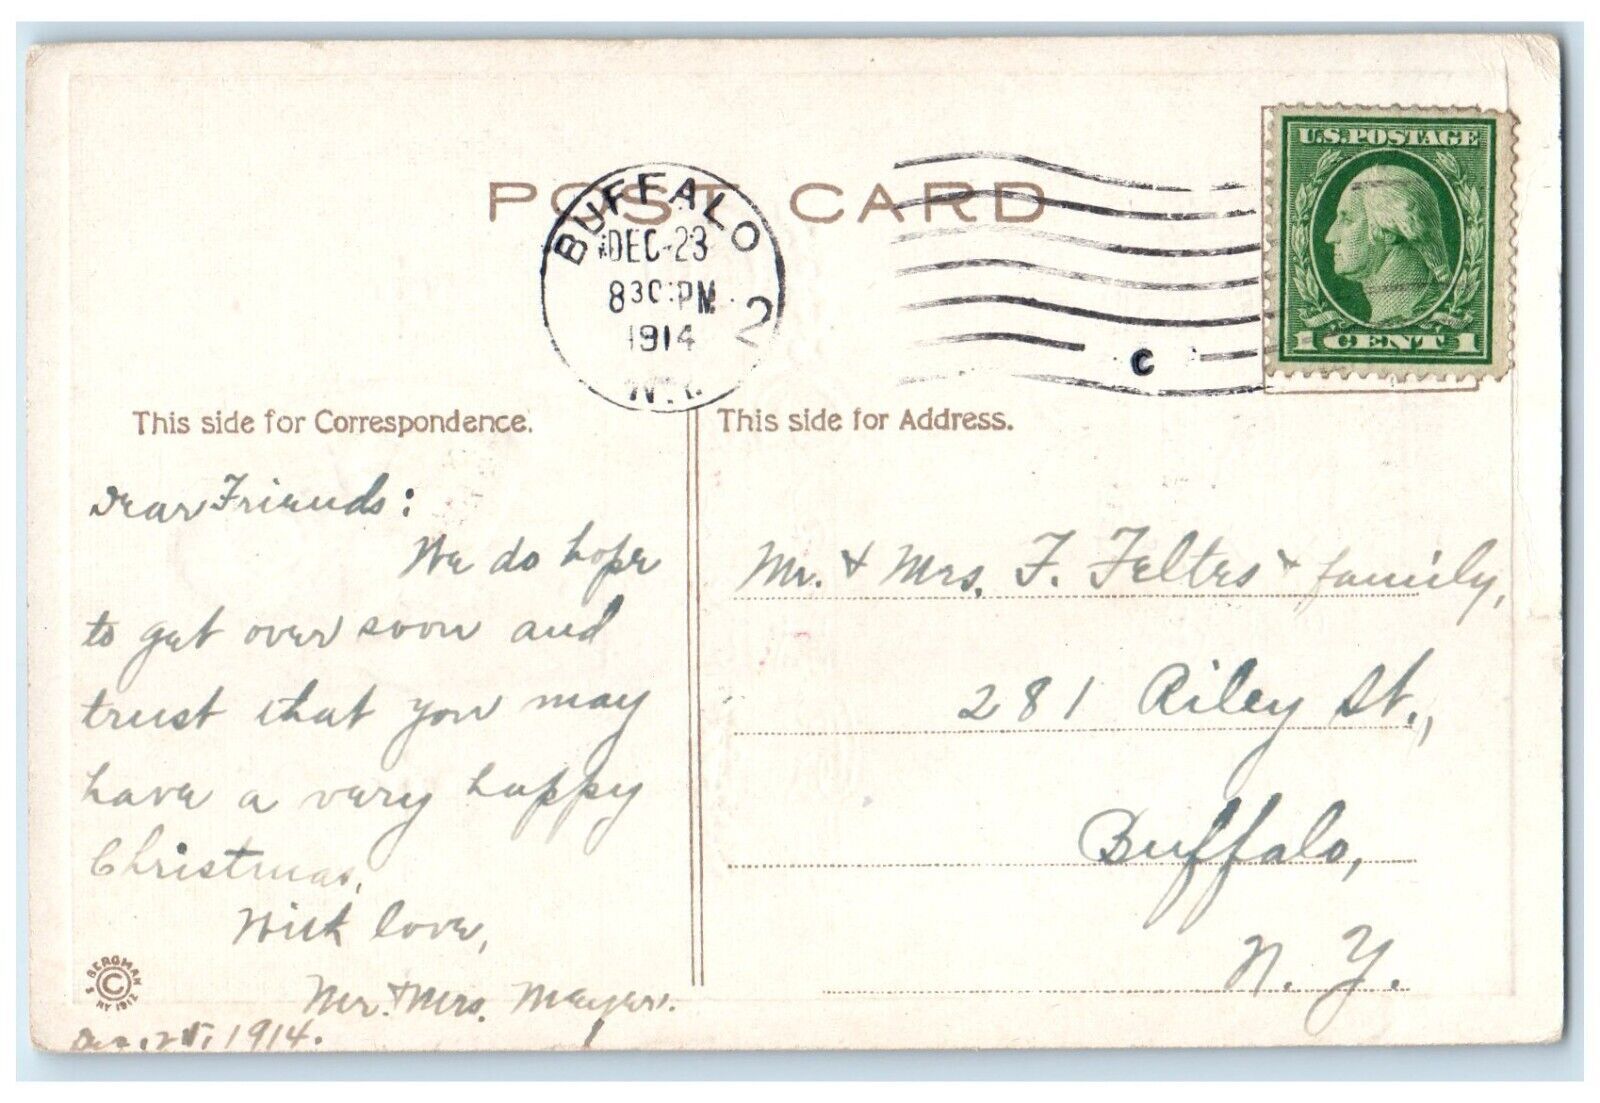 POST CARD
BUFFALO
DEC-23
830 PM
1914
N.Y.
2
C
U.S. POSTAGE
1 CENT 1
This side for Correspondence.
This side for Address.
Dear Friends:
We do hope
to get over soon and
trust that you may
have a very happy
Christmas,
With love,
Mr. & Mrs. Meyers.
Dec. 25, 1914.
Mr. & Mrs. F. Feltes & family,
281 Riley St.,
Buffalo,
N. Y.
S BERGMAN
©
NY 1912